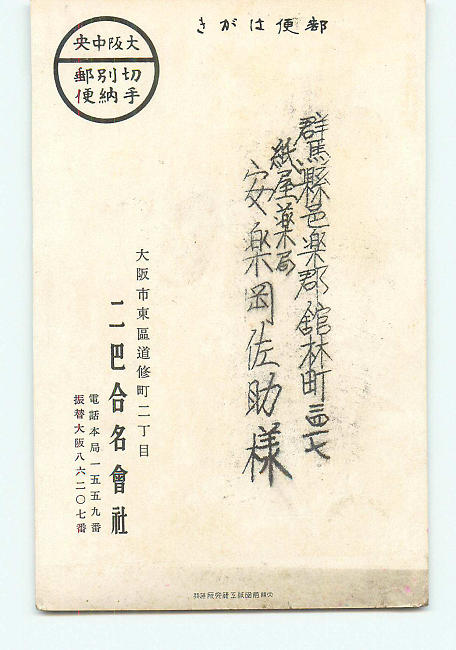 郵便はがき
大阪中央
切手別納郵便
群馬縣邑楽郡館林町三四七
紙屋薬局
安楽岡佐助様
大阪市東區道修町二丁目
二巴合名會社
電話本局一五五九番
振替大阪八六二〇七番